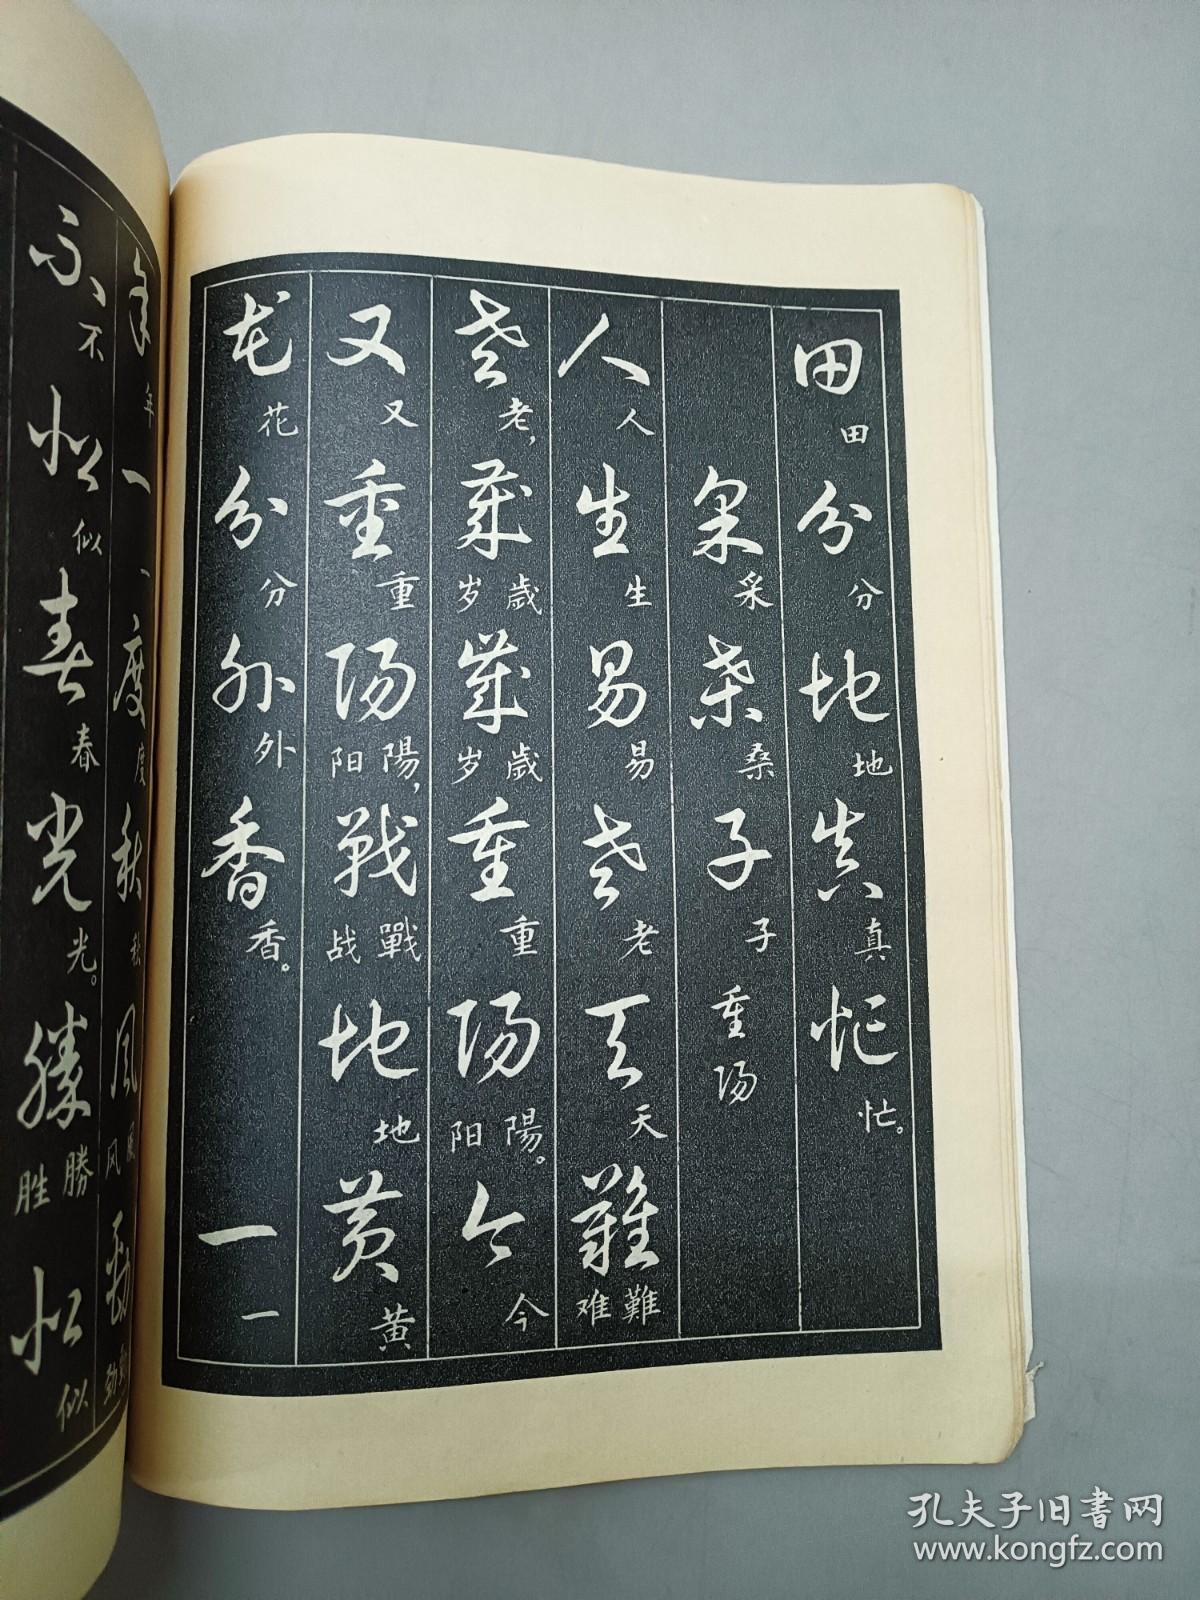 田田分分地地真真忙忙。
采采桑桑子子重陽
人人生生易易老老天天難難难
老老，歲歲岁歲歲岁重重陽陽。阳今今
又又重重陽陽，阳戰戰战地地黄黄
花花分分外外香香。一一
年年一一度度秋秋風風风勁勁劲
不不似似春春光光。勝勝胜似似
孔夫子旧书网
www.kongfz.com